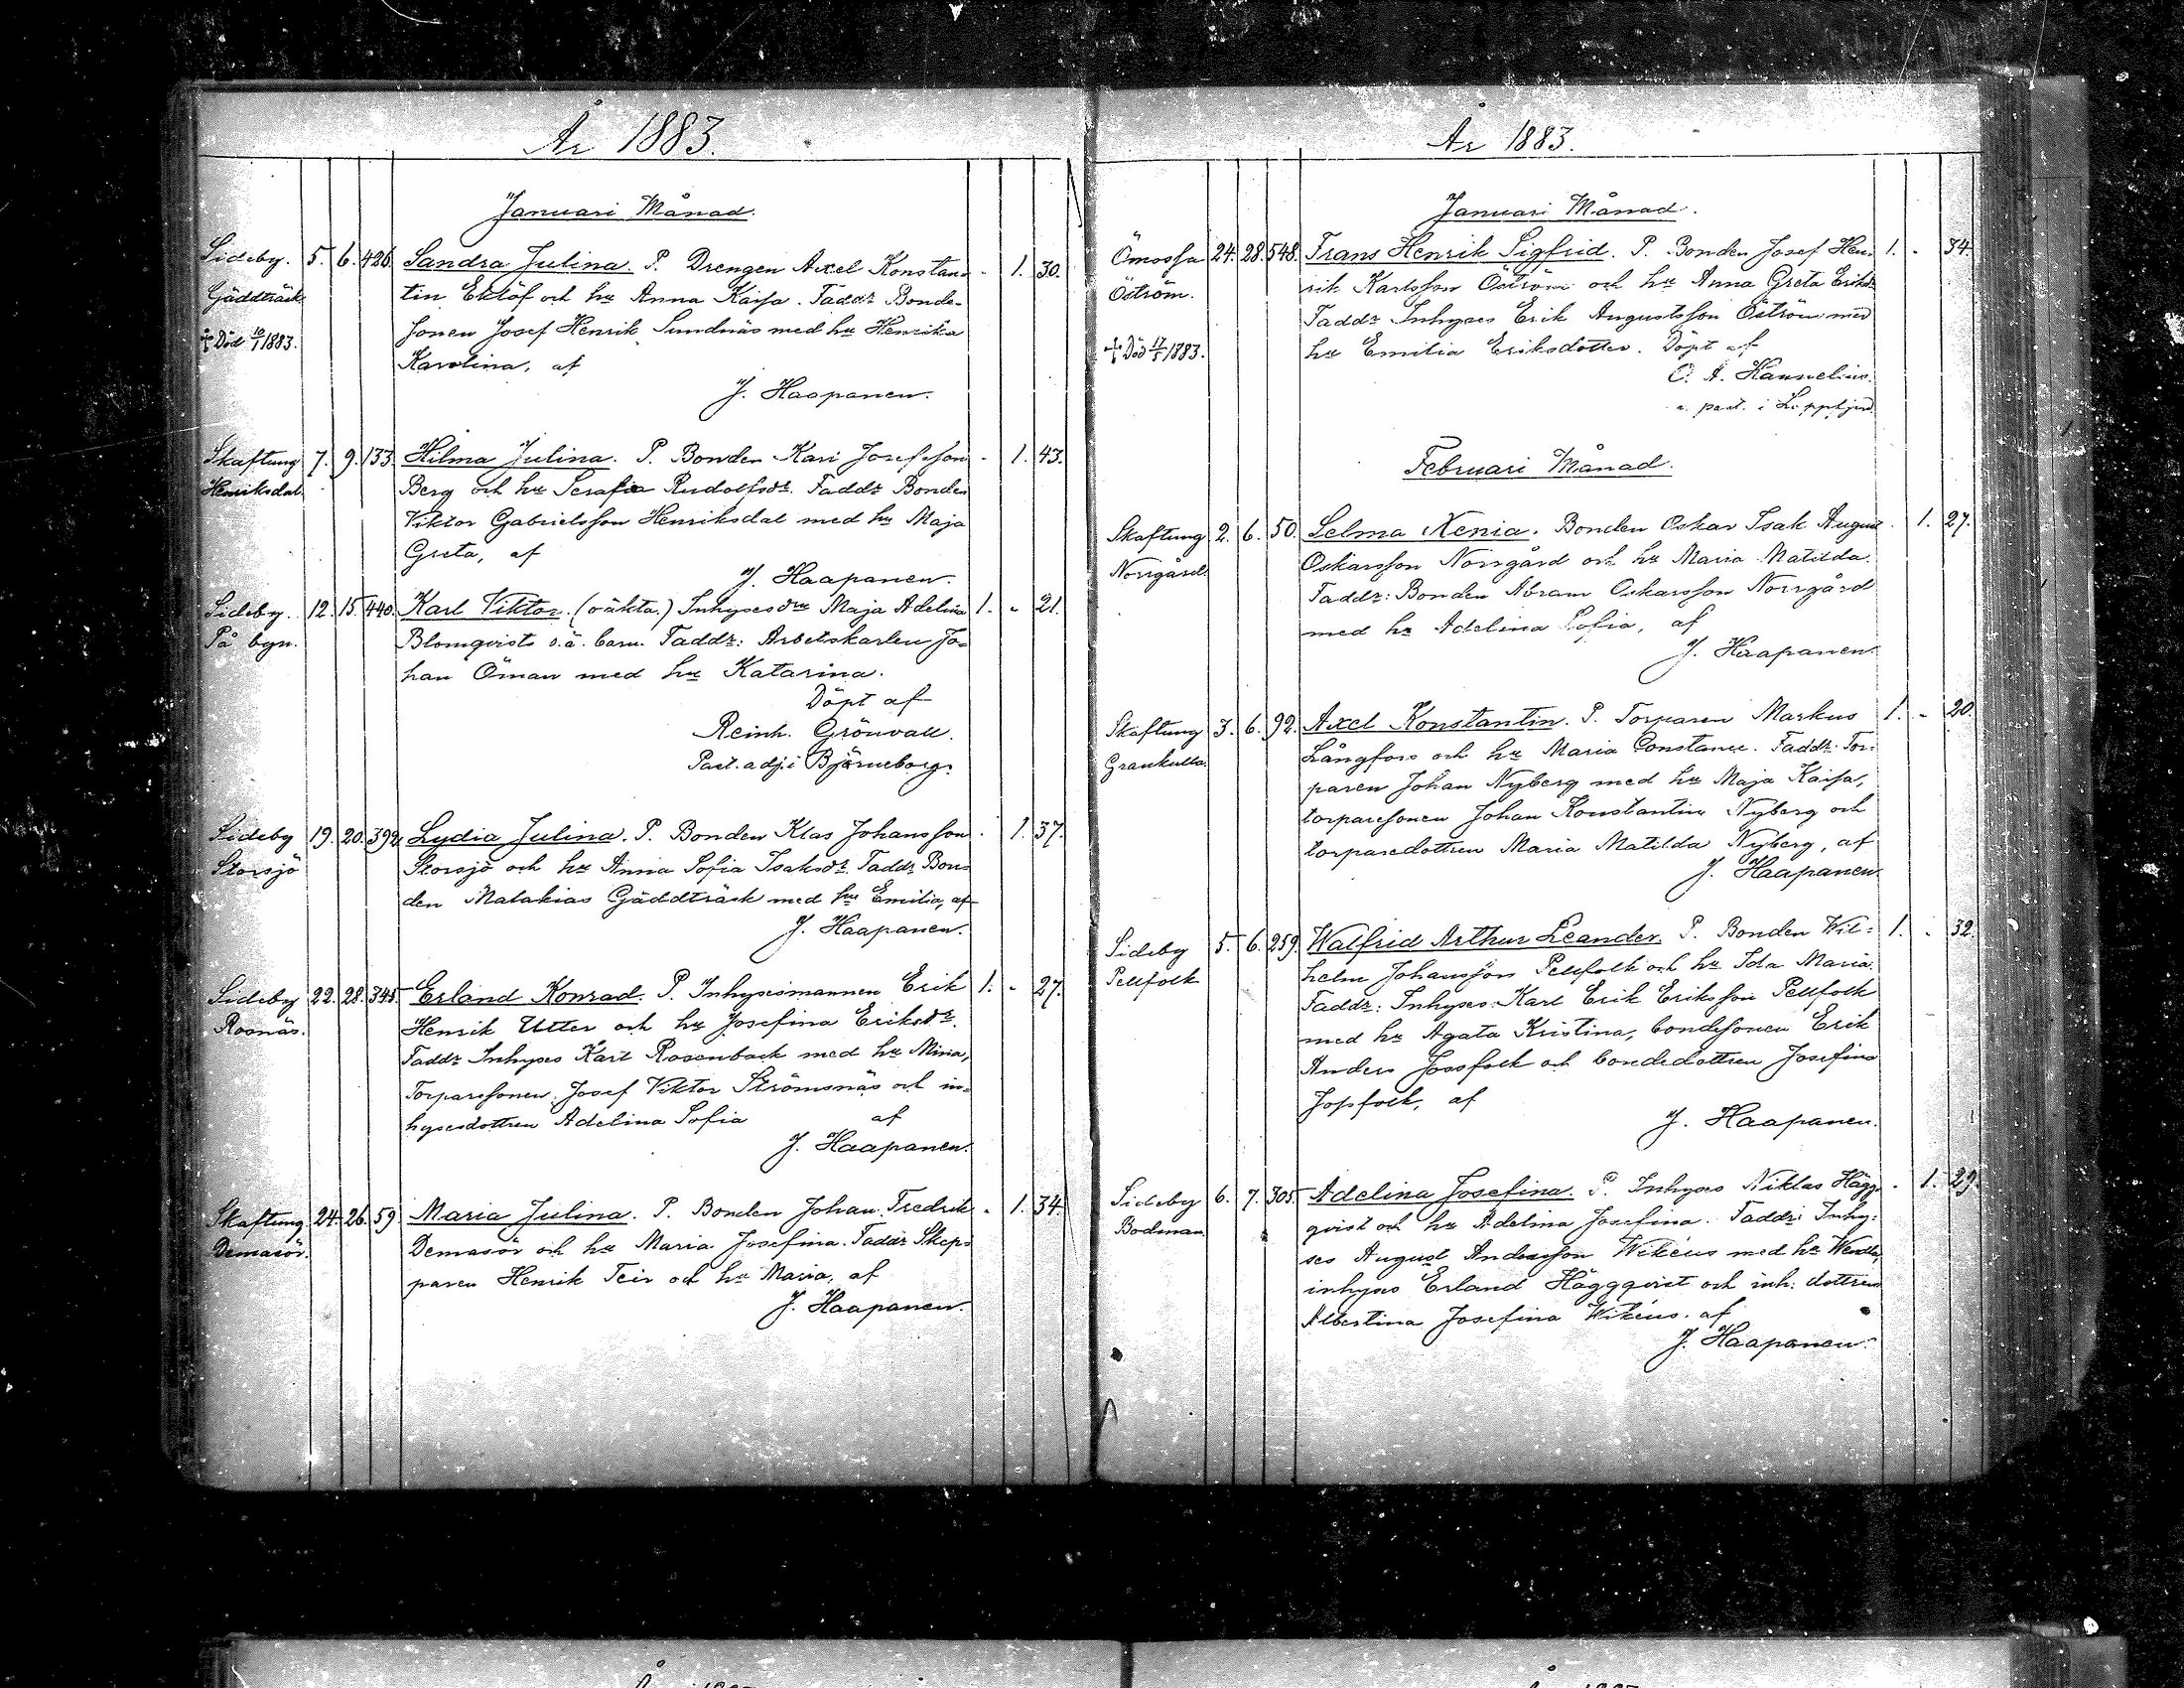 År 1883.
Januari Månad.
Sideby. 5. 6. 426. Sandra Julina. P. Drengen Axel Konstan- - 1. 30.
Gäddträsk tin Eklöf och hu Anna Kajsa. Faddr Bonde-
sonen Josef Henrik Sundnäs med hu Henrika
Död 10/1 1883.
Karolina, af
J. Haapanen.
Skaftung 7. 9. 133 Hilma Julina. P. Bonden Karl Josefsson - 1. 43.
Henriksdal Berg och hu Serafia Rudolfsdr. Faddr Bonden
Viktor Gabrielsson Henriksdal med hu Maja
Greta, af
J. Haapanen.
Sideby. 12. 15. 440. Karl Viktor. (oäkta.) Inhysesdrs Maja Adelina 1. - 21.
På byn. Blomqvists o.ä. barn. Faddr: Arbetskarlen Jo-
han Öman med hu Katarina.
Döpt af
Reinh. Grönvall.
Past. adj. i Björneborg.
Sideby 19. 20. 394. Lydia Julina. P. Bonden Klas Johansson - 1. 37.
Storsjö Storsjö och hu Anna Sofia Isaksdr. Faddr Bon-
den Malakias Gäddträsk med hu Emilia, af
J. Haapanen.
Sideby 22. 28. 345. Erland Konrad. P. Inhysesmannen Erik 1. - 27.
Rosnäs. Henrik Utter och hu Josefina Eriksdr.
Faddr Inhyses Karl Rosenback med hu Mina,
Torparesonen Josef Viktor Strömsnäs och in-
hysesdottren Adelina Sofia af
J. Haapanen.
Skaftung 24. 26. 59 Maria Julina. P. Bonden Johan Fredrik - 1. 34.
Demasör. Demasör och hu Maria Josefina. Faddr Skep-
paren Henrik Teir och hu Maria, af
J. Haapanen.
År 1883.
Januari Månad.
Ömossa 24. 28. 548. Frans Henrik Sigfrid. P. Bonden Josef Hen- 1. - 34.
Öström. rik Karlsson Öström och hu Anna Greta Eriksdr
Faddr Inhyses Erik Augustsson Öström med
Död 17/5 1883. hu Emilia Eriksdotter. Döpt af
Hannelius.
past. i Lappfjerd
Februari Månad.
Skaftung 2. 6. 50. Selma Xenia. Bonden Oskar Isak August - 1. 27.
Norrgård. Oskarsson Norrgård och hu Maria Matilda.
Faddr: Bonden Abram Oskarsson Norrgård
med hu Adelina Sofia, af
J. Haapanen.
Skaftung 3. 6. 92. Axel Konstantin. P. Torparen Markus 1. - 20.
Grankulla. Långfors och hu Maria Constance. Faddr. Tor-
paren Johan Nyberg med hu Maja Kajsa,
torparesonen Johan Konstantin Nyberg och
torparedottren Maria Matilda Nyberg, af
J. Haapanen.
Sideby 5. 6. 259. Walfrid Arthur Leander. P. Bonden Wil- 1. - 32.
Pellfolk helm Johansson Pellfolk och hu Ida Maria.
Faddr: Inhyses Karl Erik Eriksson Pellfolk
med hu Agata Kristina, bondesonen Erik
Anders Jossfolk och bondedottren Josefina
Jossfolk, af
J. Haapanen.
Sideby 6. 7. 305. Adelina Josefina. P. Inhyses Niklas Hägg- - 1. 29.
Bodman. qvist och hu Adelina Josefina. Faddr: Inhy-
ses August Andersson Wikéus med hu Wendla,
inhyses Erland Häggqvist och inh: dottren
Albertina Josefina Wikéus. af
J. Haapanen.